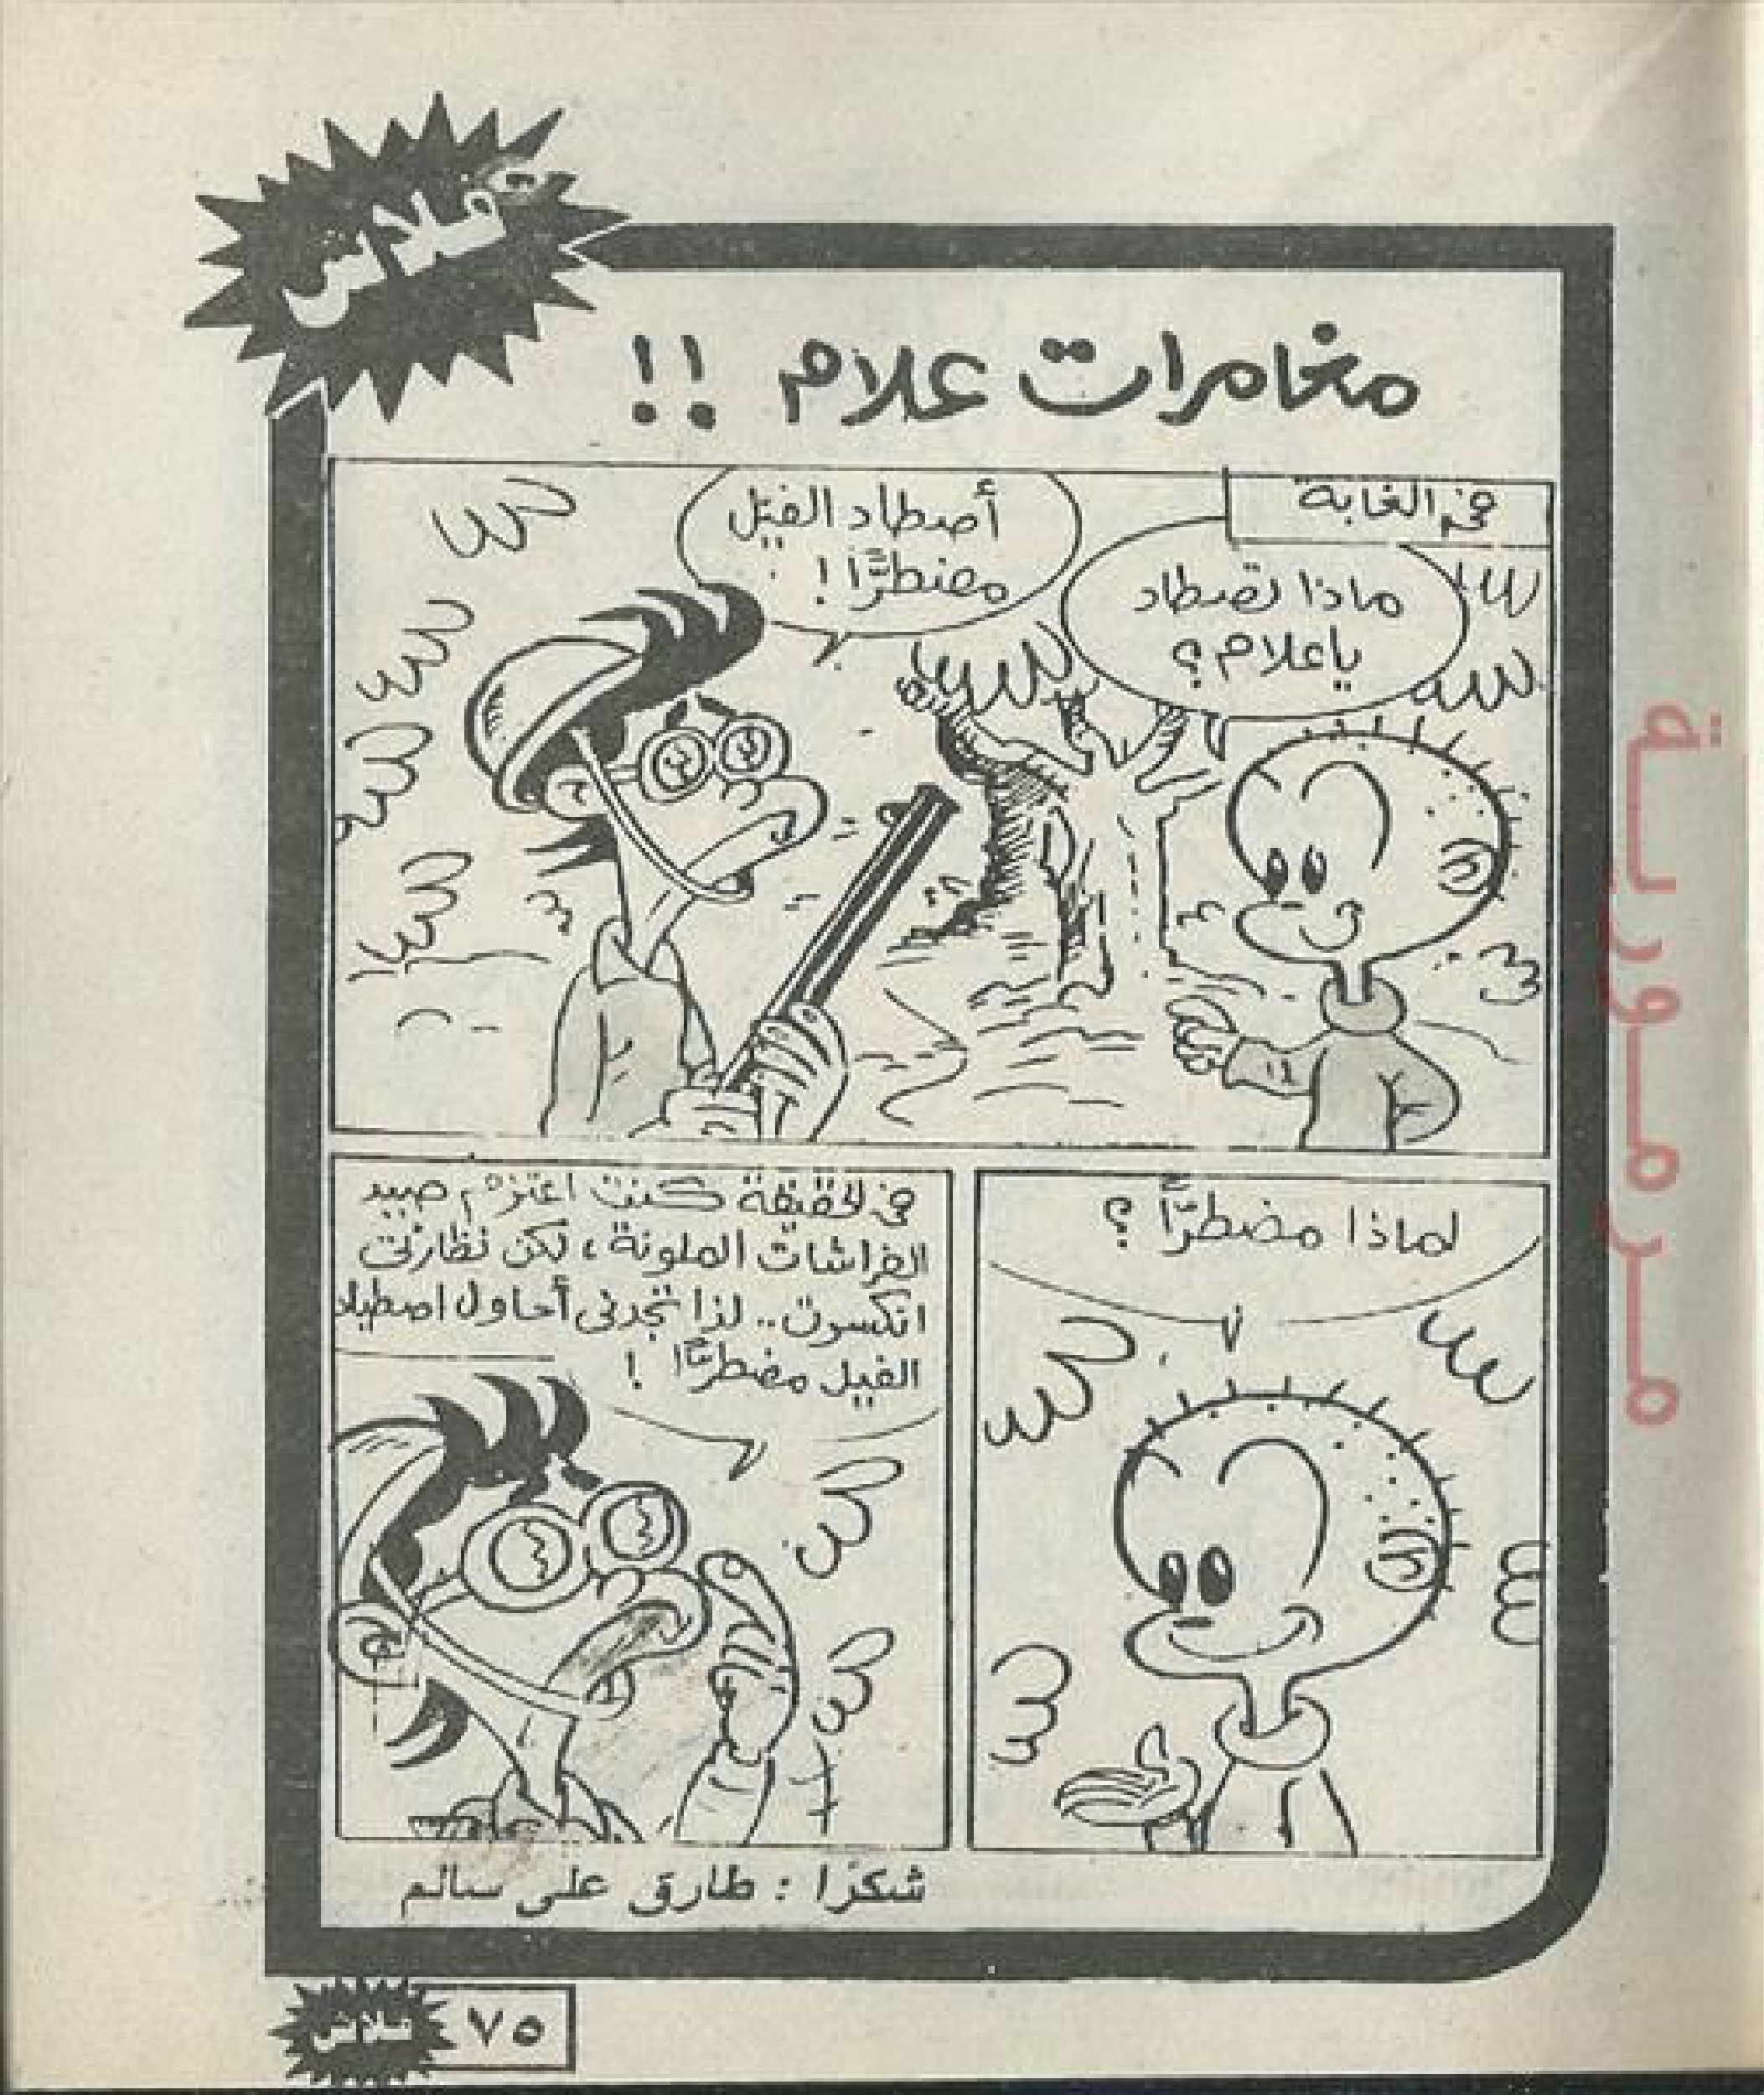 فلاش
مغامرات علام !!
فى الغابة
ماذا تصطاد
ياعلام؟
أصطاد الفيل
مضطرًّا !
لماذا مضطرًّا ؟
فى الحقيقة كنت اعتزم صيد
الفراشات الملونة، لكن نظارتى
انكسرت.. لذا تجدنى أحاول اصطياد
الفيل مضطرًّا !
شكرًا : طارق على سالم
فلاش
٧٥
مرمورية